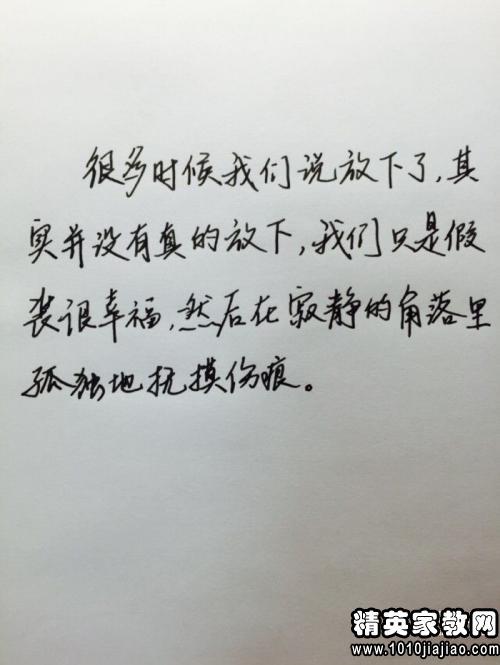 很多时候我们说放下了，其
实并没有真的放下，我们只是假
装很幸福，然后在寂静的角落里
孤独地抚摸伤痕。
精英家教网
www.1010jiajiao.com